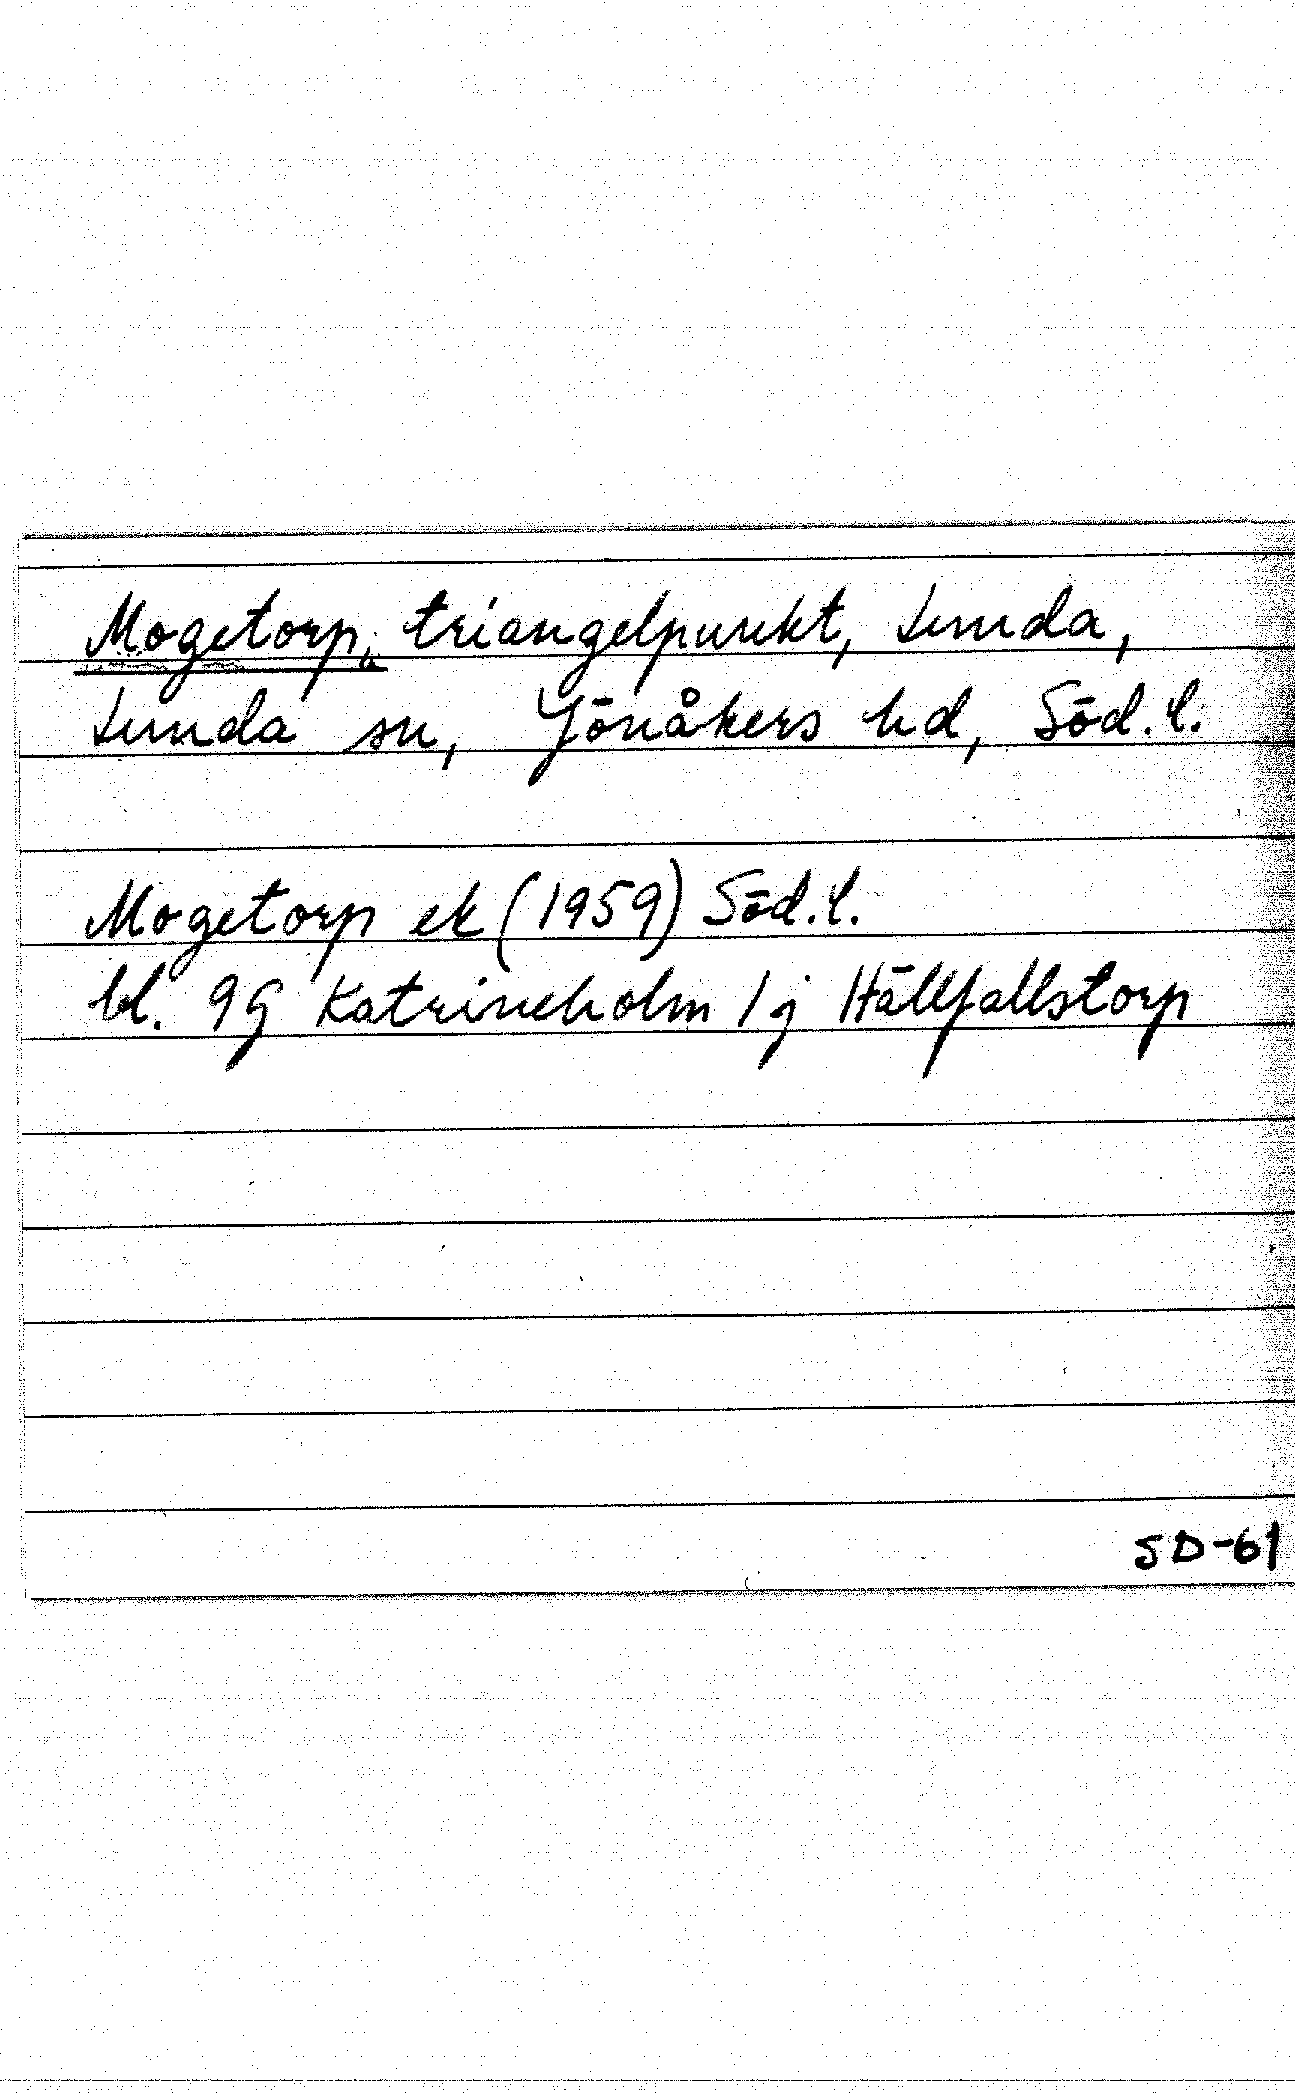 Mogetorp, triangelpunkt, Lunda,
Lunda sn, Jönåkers hd, Söd. l.
Mogetorp ek (1959) Söd. l.
bl. 9G Katrineholm 1j Hällfallstorp
SD-61